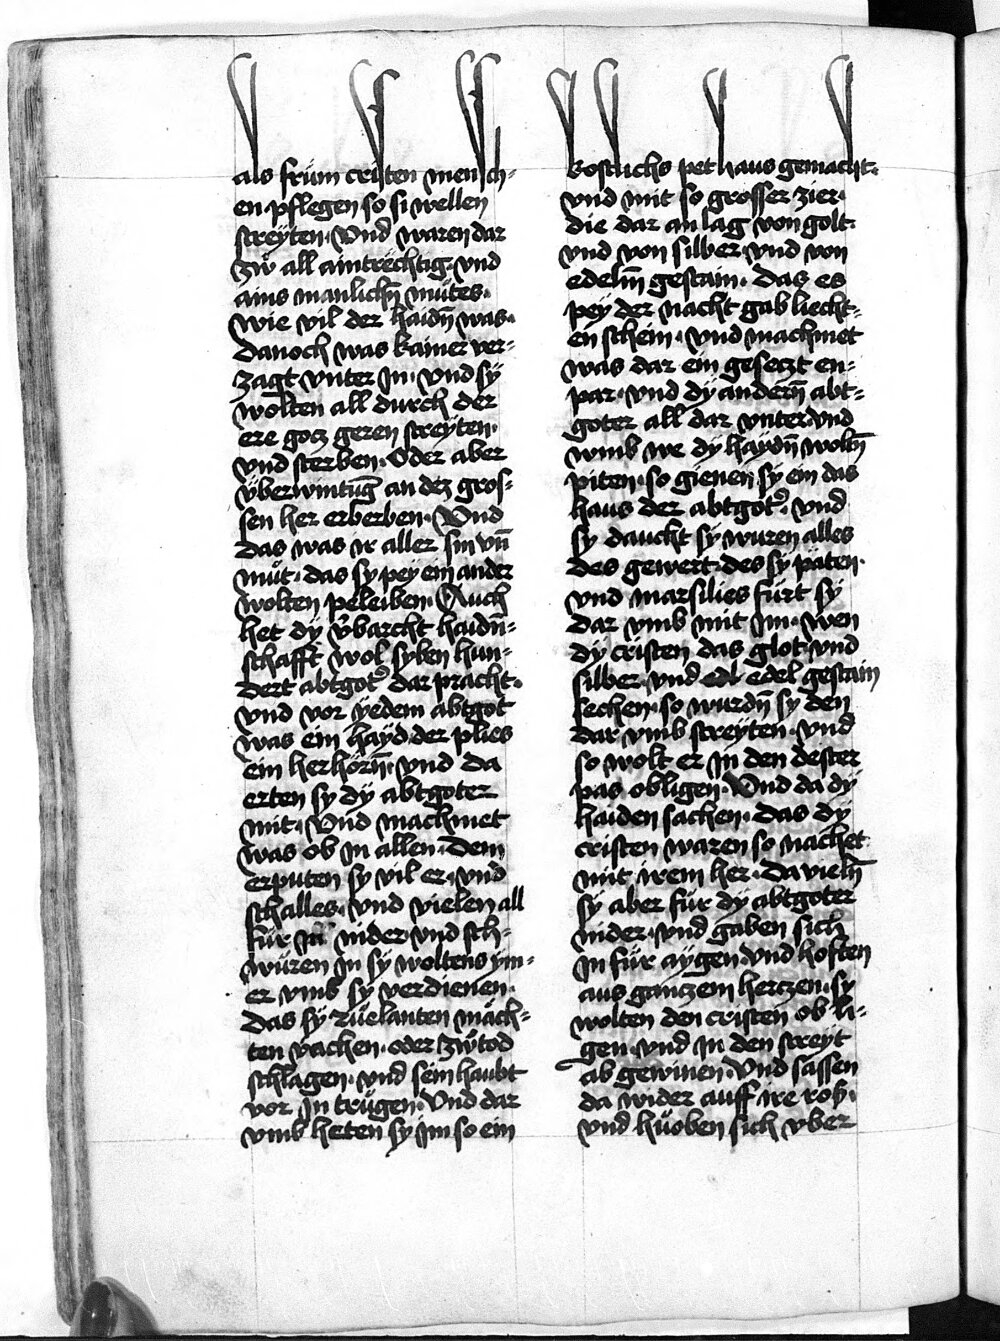 als frum cristen mensch-
en pflegen so si wellen
streyten. Vnd waren dar
zw all aintrechtig. vnd
ains manlichn̄ mütes.
wie vil der haidn̄ was.
danoch was kainer ver-
zagt vnter In. vnd sy
wolten all durch der
ere gocz geren streyten.
vnd sterben. Oder aber
vberwintūg an dez gros-
sen her erberben. Vnd
das was ir aller sin vn̄
müt. das sy pey ein ander
wolten peleiben. Auch
het dy v̈barcht haidn̄-
schafft wol syben hun-
dert abtgot͛ dar pracht.
vnd vor yedem abtgot
was ein hayd. der plies
ein herhörn̄. vnd da
erten sy dy abtgoter
mit. Vnd machmet
was ob In allen. Dem
erputen sy vil er. vnd
schalles. vnd vielen all
für In nider vnd sch-
würen In sy woltens ym-
er vmb sy verdienen.
das sy Rüelanten mäch-
ten vachen. oder zw tod
schlagen. vnd sein haubt
vor In trügen. Vnd dar
vmb heten sy Im so ein
kostlichs pethaus gemacht.
vnd mit so grosser zier.
die dar an lag von golt.
vnd von silber. vnd von
edelm̄ gestain. das es
pey der nacht gab liecht-
en schein. vnd machmet
was dar ein gesetzt en-
par. vnd dy andern̄ abt-
goter all dar vnter. vnd
wmb we dy haydn̄ woltn̄
piten. so gienen sy ein das
haus der abtgot͛. vnd
sy daucht sy wuren alles
des gewert. des sy päten.
vnd marsilies fürt sy
dar vmb mit Im. wen
dy cristen das glot. vnd
silber. vnd edl edel gestain
sechen. so wurdn̄ sy den
dar vmb streyten. vnd
so wolt er In den dester
pas obligen. Vnd da dy
haiden sachen. das dy
cristen waren so nachet
mit irem her. da vieln̄
sy aber für dy abtgoter
nider. vnd gaben sich
In für aygen. vnd hoften
aus ganczem herczen. sy
wolten den cristen ob li-
gen. vnd In den streyt
ab gewinen. Vnd sassen
da wider auff ire roß.
vnd hüoben sich vber